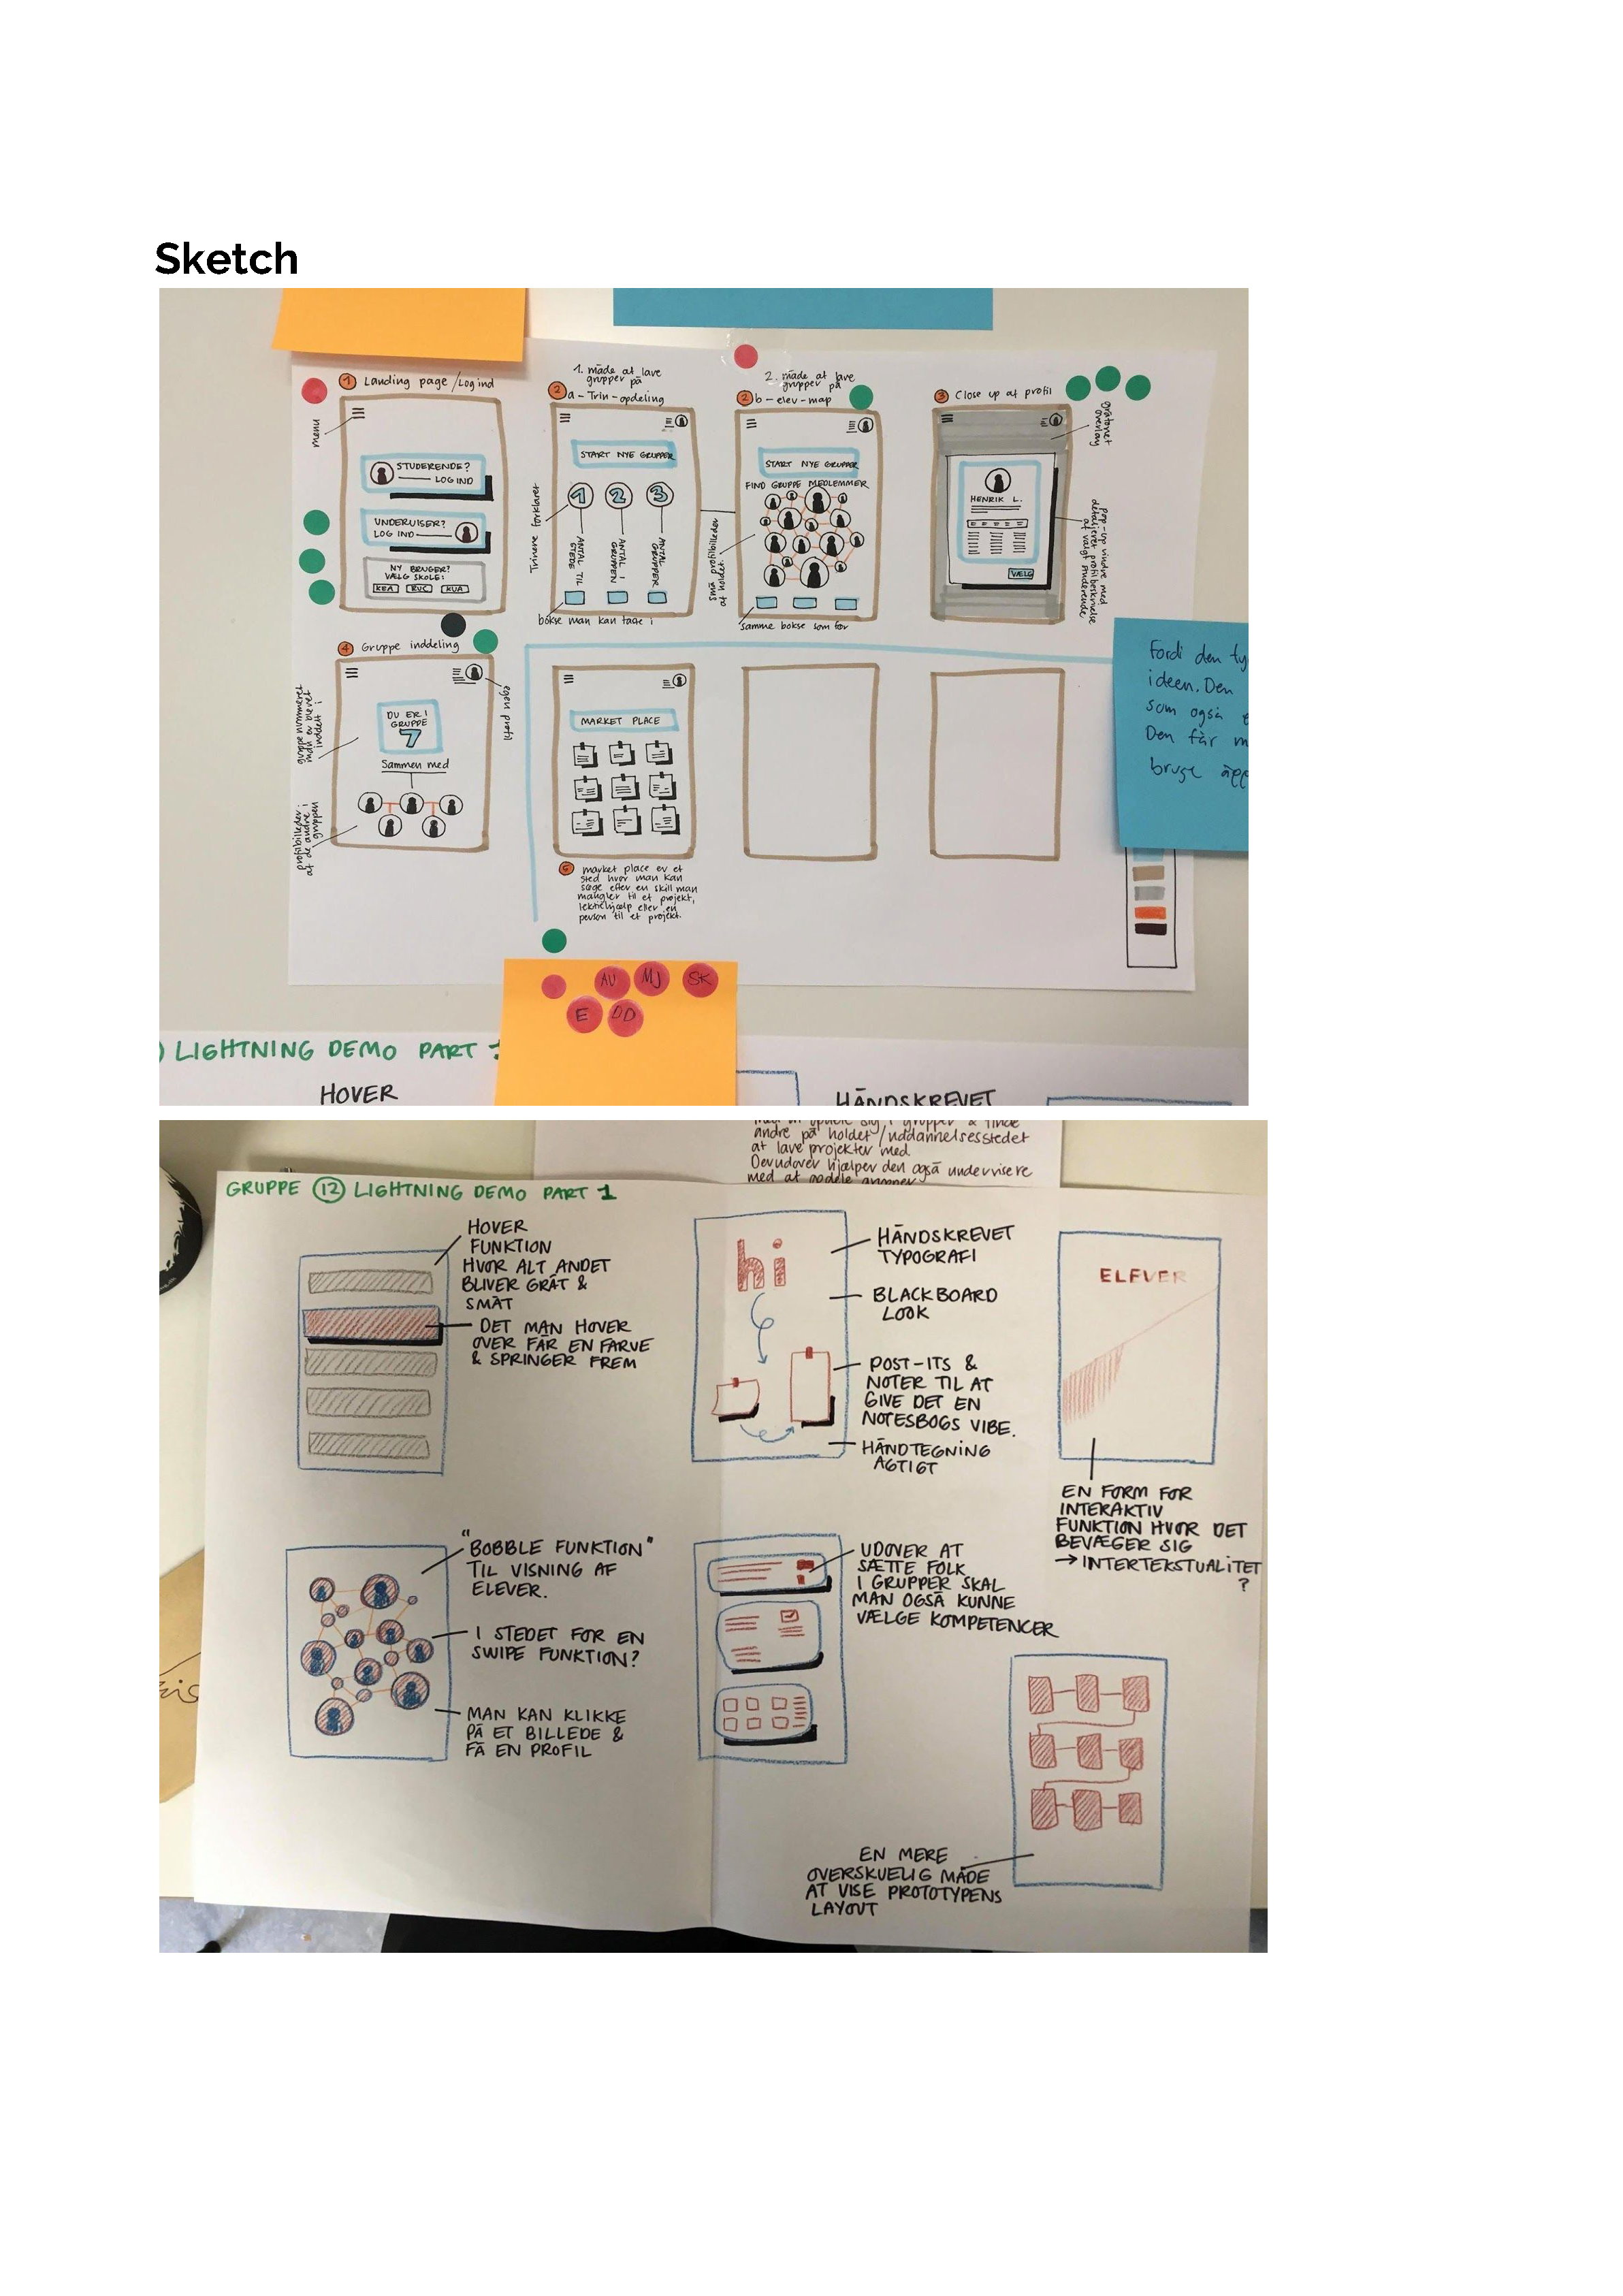 Sketch
1 Landing page / Log ind
menu
STUDERENDE?
LOG IND
UNDERVISER?
LOG IND
NY BRUGER?
VÆLG SKOLE:
KEA RUC KUA
1. måde at lave
grupper på
2 a - Trin-opdeling
START NYE GRUPPER
1 2 3
Trinene forklaret
ANTAL TIL
STEDE
ANTAL I
GRUPPEN
ANTAL
GRUPPER
bokse man kan taste i
2. måde at lave
grupper på
2 b - elev-map
START NYE GRUPPER
FIND GRUPPE MEDLEMMER
små profilbilleder
af holdet.
Samme bokse som før
3 Close up af profil
gråtonet
overlay
HENRIK L.
VÆLG
pop-up vindue med
detaljeret profilbeskrivelse
af valgt studerende
4 Gruppe inddeling
egen profil
DU ER I
GRUPPE
7
Sammen med
Gruppe nummeret
man er blevet
inddelt i
profilbilleder
af de andre i
gruppen
MARKET PLACE
market place er et
sted hvor man kan
søge efter en skill man
mangler til et projekt,
lektiehjælp eller en
person til et projekt.
Fordi den ty
ideen. Den
som også e
Den får m
bruge app
AV MJ SK
E DD
) LIGHTNING DEMO PART 1
HOVER
HÅNDSKREVET
andre på holdet/uddannelsesstedet
at lave projekter med.
Derudover hjælper den også undervisere
med at opdele grupper
GRUPPE 12 LIGHTNING DEMO PART 1
HOVER
FUNKTION
HVOR ALT ANDET
BLIVER GRÅT &
SMÅT
DET MAN HOVER
OVER FÅR EN FARVE
& SPRINGER FREM
hi
HÅNDSKREVET
TYPOGRAFI
BLACKBOARD
LOOK
POST-ITS &
NOTER TIL AT
GIVE DET EN
NOTESBOGS VIBE.
HÅNDTEGNING
AGTIGT
ELEVER
EN FORM FOR
INTERAKTIV
FUNKTION HVOR DET
BEVÆGER SIG
→ INTERTEKSTUALITET
?
"BOBBLE FUNKTION"
TIL VISNING AF
ELEVER.
I STEDET FOR EN
SWIPE FUNKTION?
MAN KAN KLIKKE
PÅ ET BILLEDE &
FÅ EN PROFIL
UDOVER AT
SÆTTE FOLK
I GRUPPER SKAL
MAN OGSÅ KUNNE
VÆLGE KOMPETENCER
EN MERE
OVERSKUELIG MÅDE
AT VISE PROTOTYPENS
LAYOUT